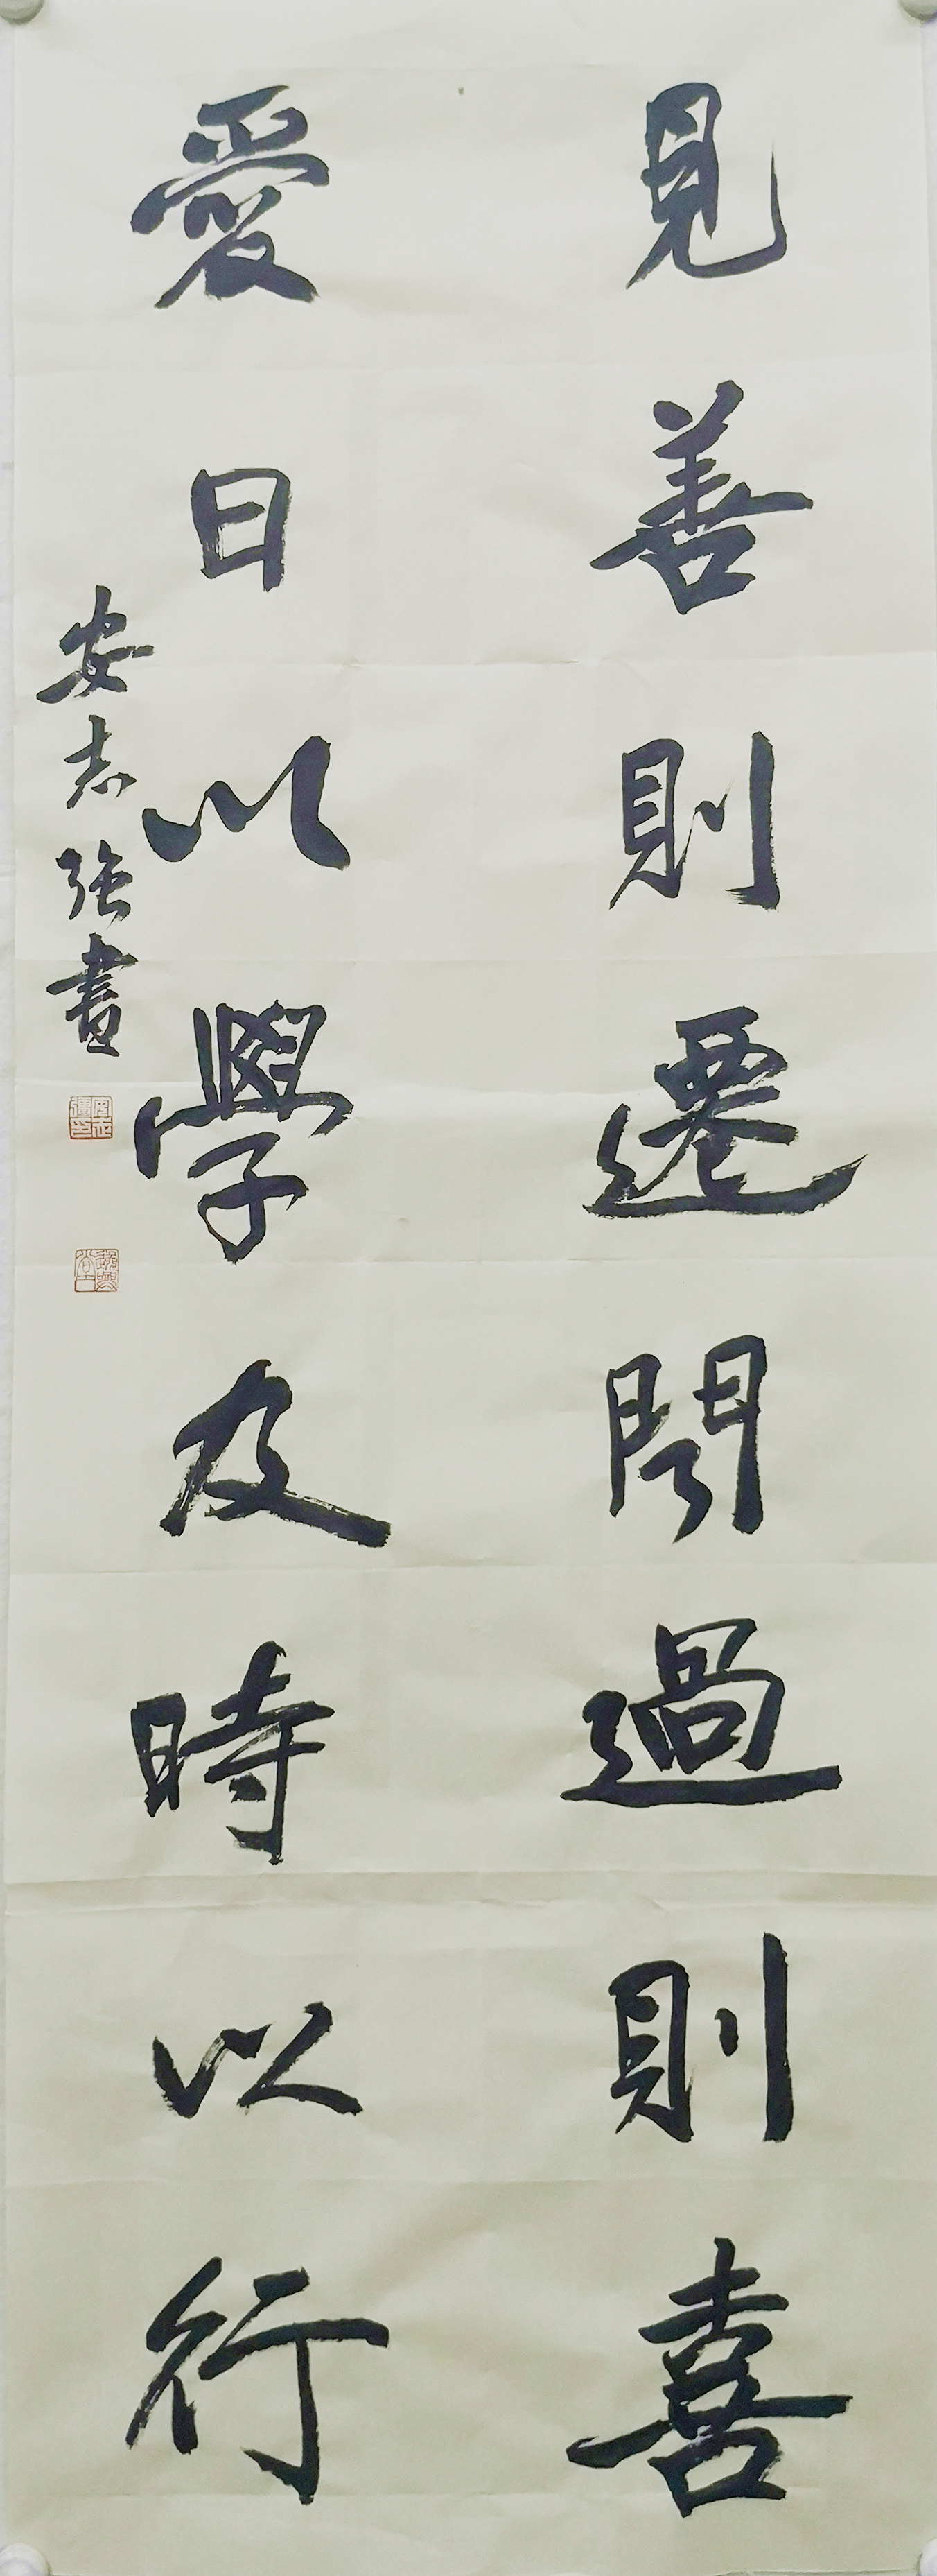 見善則遷聞過則喜
愛日以學及時以行
安志強書